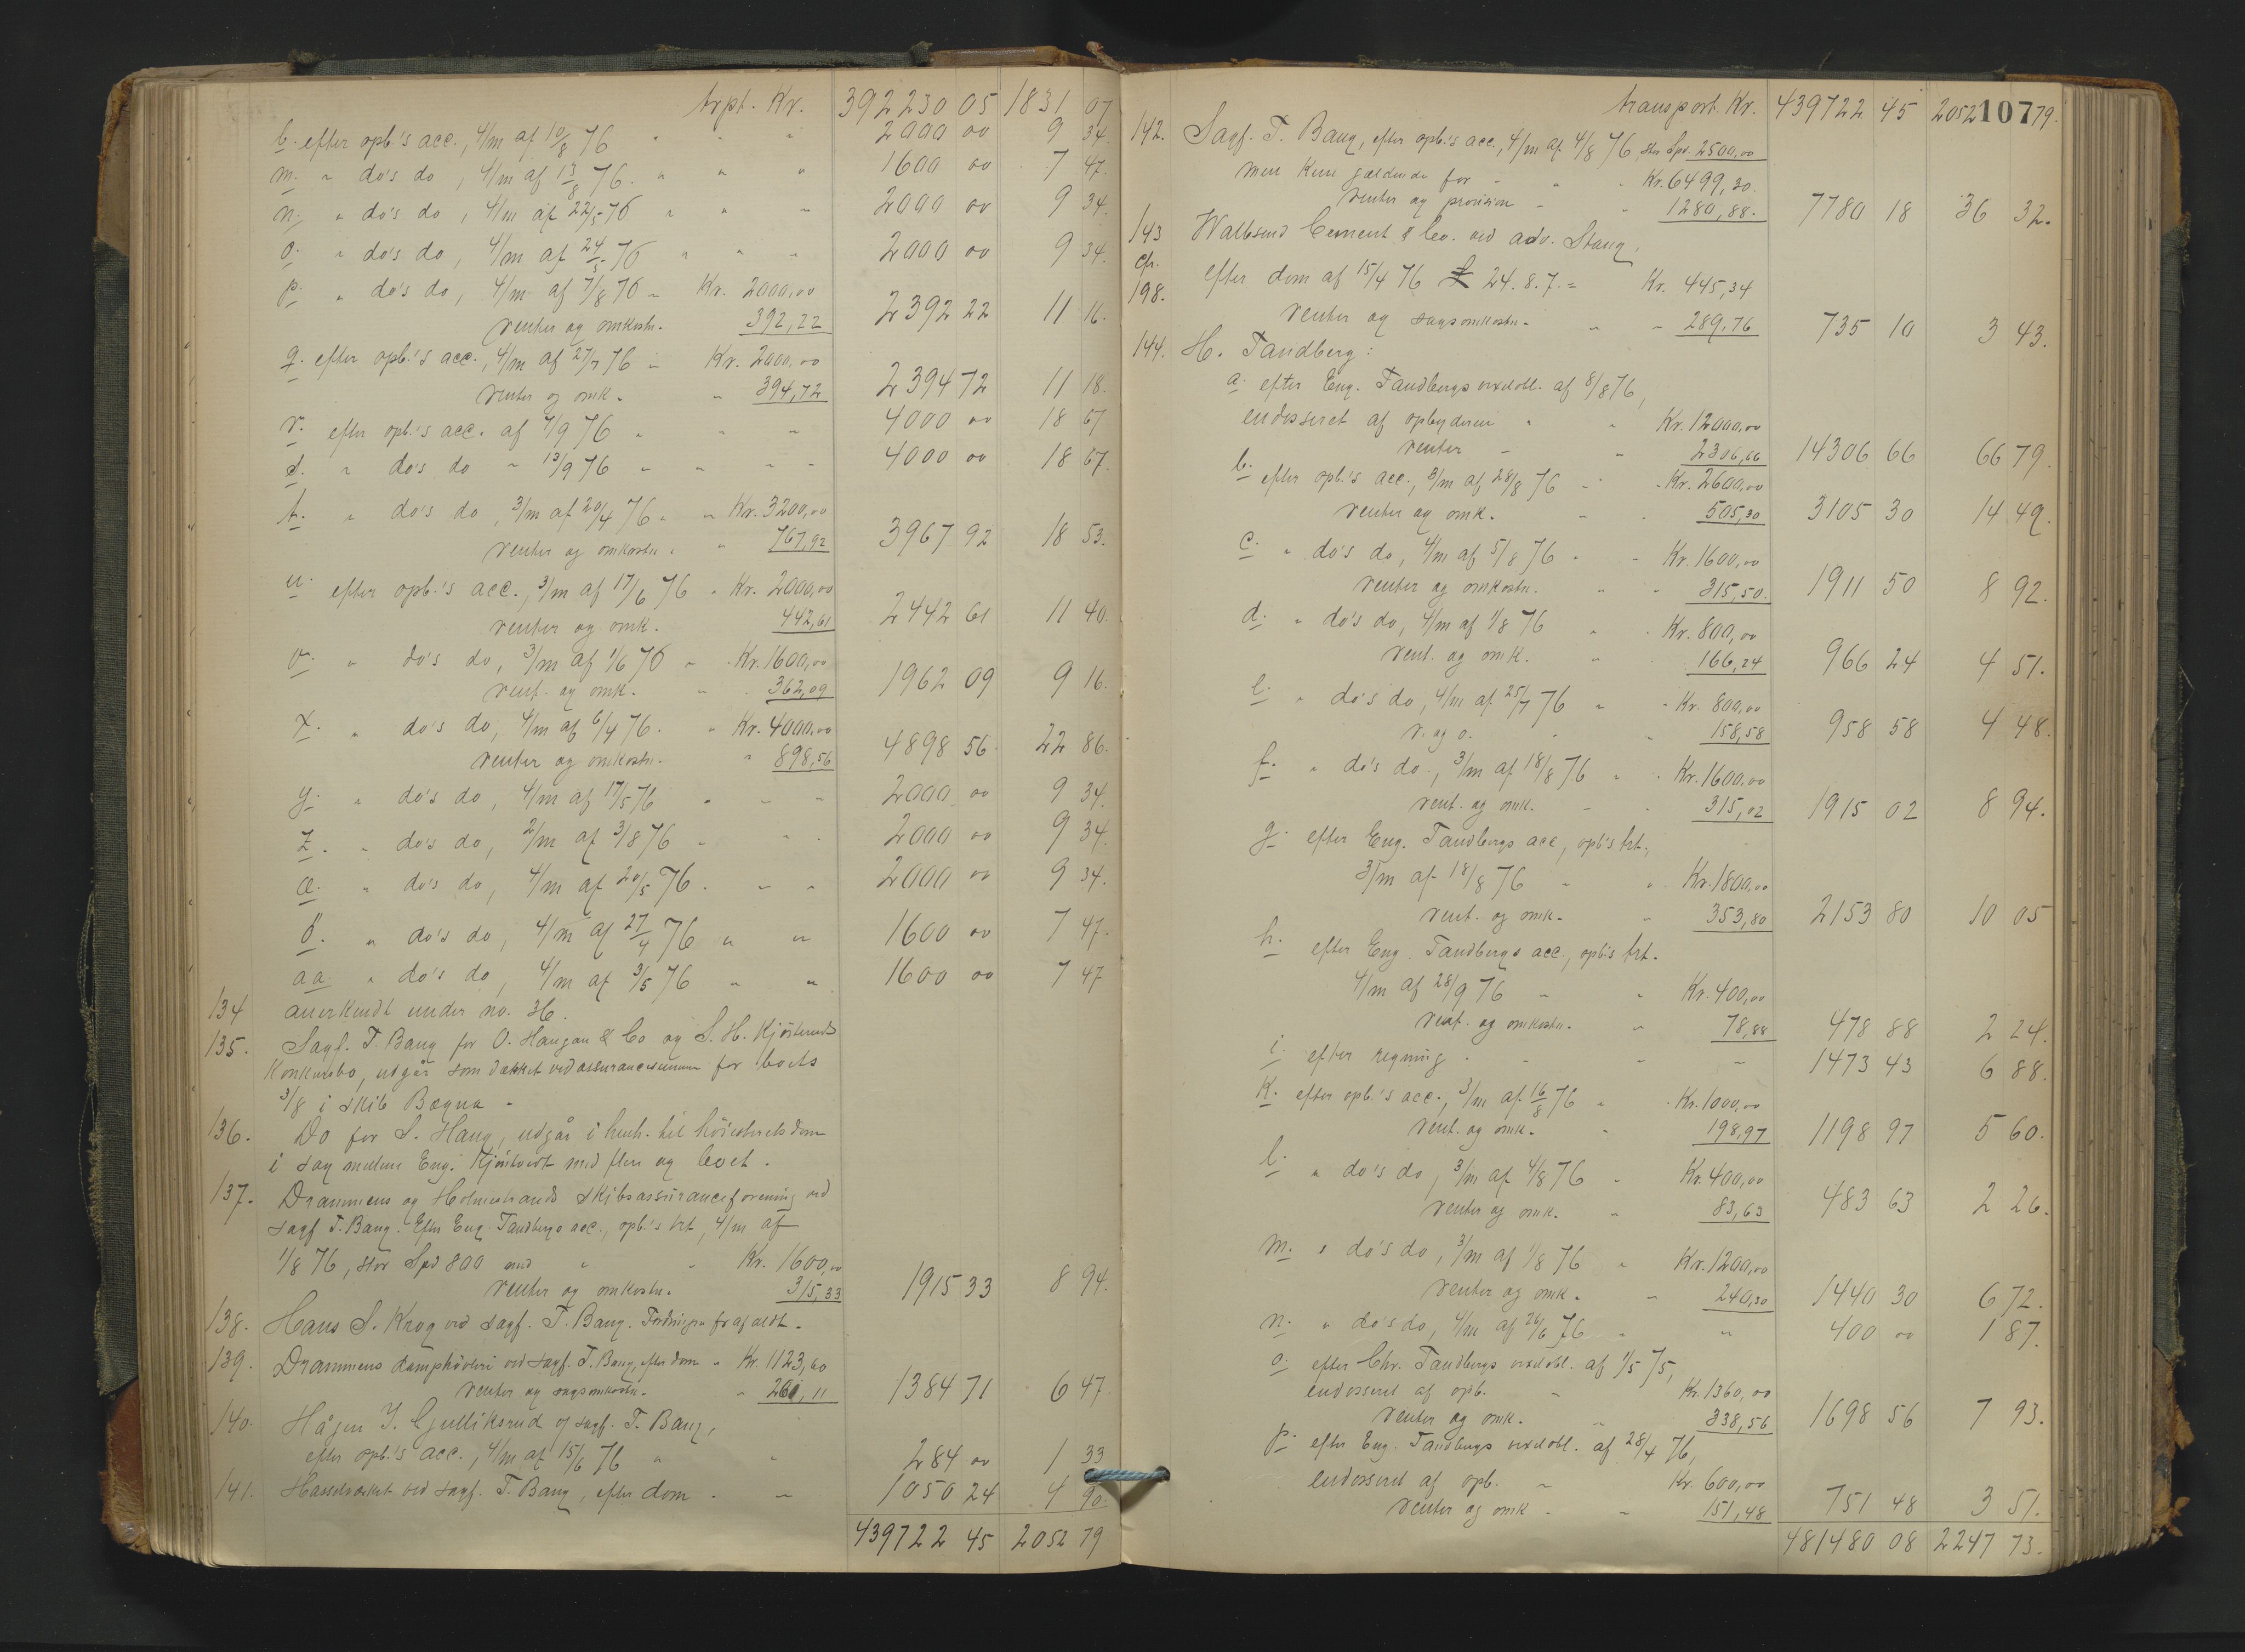 trpt. Kr. 392230 05 1831 07
l. efter opb.'s acc., 4/m af 10/8 76 " " " 2000 00 9 34.
m. " do's do, 4/m af 13/8 76. " " " 1600 00 7 47.
n. " do's do, 4/m af 22/5 76 " " " 2000 00 9 34.
o. " do's do, 4/m af 24/5 76 " " " 2000 00 9 34.
p. " do's do, 4/m af 7/8 76 " Kr. 2000,00
venter og omkostn. 392,22 2392 22 11 16.
q. efter opb.'s acc., 4/m af 27/7 76 " Kr. 2000,00
renter og omk. " 394,72 2394 72 11 18.
r. efter opb.'s acc. af 7/9 76 " " " 4000 00 18 67
s. " do's do " 13/9 76 " " " " 4000 00 18 67.
t. " do's do, 3/m af 20/4 76 " " Kr. 3200,00
renter og omkostn. " " 767,92 3967 92 18 53.
u. efter opb.'s acc., 3/m af 17/6 76 " Kr. 2000,00
renter og omk. 442,61 2442 61 11 40.
v. " do's do, 3/m af 1/6 76 " Kr. 1600,00
rent. og omk. " 362,09 1962 09 9 16.
x. " do's do, 4/m af 6/4 76. " Kr. 4000,00
renter og omkostn. " 898,56 4898 56 22 86.
y. " do's do, 4/m af 17/5 76 " " " 2000 00 9 34.
z. " do's do, 2/m af 3/8 76 " " " 2000 00 9 34.
æ. " do's do, 4/m af 20/5 76. " " 2000 00 9 34.
ö. " do's do, 4/m af 27/4 76 " " 1600 00 7 47.
aa. " do's do, 4/m af 3/5 76 " " 1600 00 7 47
134 anerkendt under no. 36.
135. Sagf. T. Bang for O. Haugan & Co og S. H. Kjösteruds
Konkursbo, udgår som dækket ved assurancesummen for boets
3/8 i skib Bægna -
136. Do for S. Haug, udgår i henh. til höiesteretsdom
i sag mellem Eng. Kjöstvedt med flere og boet.
137. Drammens og Holmestrands skibsassuranceforening ved
sagf T. Bang. Efter Eng. Tandbergs acc., opb.'s trt, 4/m af
1/8 76, stor Spd 800 med " " Kr. 1600,00
renter og omkostn. 315,33 1915 33 8 94.
138. Hans S. Krog ved sagf. T. Bang. Fordringen frafaldt.
139. Drammens damphövleri ved sagf. T. Bang, efter dom " Kr. 1123,60
renter og sagsomkostn. " 261,11 1384 71 6 47
140. Hågen J. Gulliksrud v/ sagf. T. Bang,
efter opb.'s acc., 4/m af 15/6 76 " " 284 00 1 33
141. Hasselværket ved sagf. T. Bang, efter dom. " 1050 24 4 90.
439722 45 2052 79
107
transport Kr. 439722 45 2052 79.
142. Sagf. T. Bang, efter opb.'s acc., 4/m af 4/8 76, stor Spd. 2500,00
men kun gældende for " " " Kr. 6499,30.
renter og provision " " 1280,88. 7780 18 36 32.
143 Wallsend Cement & Co. ved adv. Stang,
cfr. 198. efter dom af 15/4 76 £ 24. 8. 7. = Kr. 445,34
renter og sagsomkostn. " " 289,76 735 10 3 43.
144. H. Tandberg:
a. efter Eng. Tandbergs vexelobl. af 8/8 76,
endosseret af opbyderen " " Kr. 12000,00
renter " " 2306,66 14306 66 66 79.
b. efter opb.'s acc., 3/m af 28/8 76 " " Kr. 2600,00
renter og omk. " " 505,30 3105 30 14 49.
c. " do's do, 4/m af 5/8 76 " " Kr. 1600,00
renter og omkostn. " " 315,50. 1911 50 8 92.
d. " do's do, 4/m af 1/8 76 " " Kr. 800,00
rent. og omk. " 166,24 966 24 4 51.
e. " do's do, 4/m af 25/7 76 " " Kr. 800,00
r. og o. " " 158,58 958 58 4 48.
f. " do's do, 3/m af 18/8 76 " " Kr. 1600,00
rent. og omk. " " 315,02 1915 02 8 94.
g. efter Eng. Tandbergs acc, opb's trt.,
3/m af 18/8 76 " " Kr. 1800,00
rent. og omk. " 353,80 2153 80 10 05
h. efter Eng. Tandbergs acc., opb's trt.
4/m af 28/9 76 " " Kr. 400,00
rent. og omkostn. " 78,88 478 88 2 24.
i. efter regning. " " " 1473 43 6 88.
k. efter opb.'s acc., 3/m af 16/8 76 " " Kr. 1000,00
rent. og omk. " 198,97 1198 97 5 60.
l. " do's do, 3/m af 4/8 76 " Kr. 400,00
renter og omk. " 83,63 483 63 2 26.
m. " do's do, 3/m af 1/8 76 " Kr. 1200,00
renter og omk. " 240,30 1440 30 6 72.
n. " do's do, 4/m af 26/6 76 " " 400 00 1 87.
o. efter Chr. Tandbergs vexelobl. af 1/5 75,
endosseret af opb. " Kr. 1360,00
renter og omk. " 338,56 1698 56 7 93.
p. efter Eng. Tandbergs vexelobl. af 28/4 76,
endosseret af opb. " Kr. 600,00
renter og omk " " 151,48 751 48 3 51.
481480 08 2247 73.